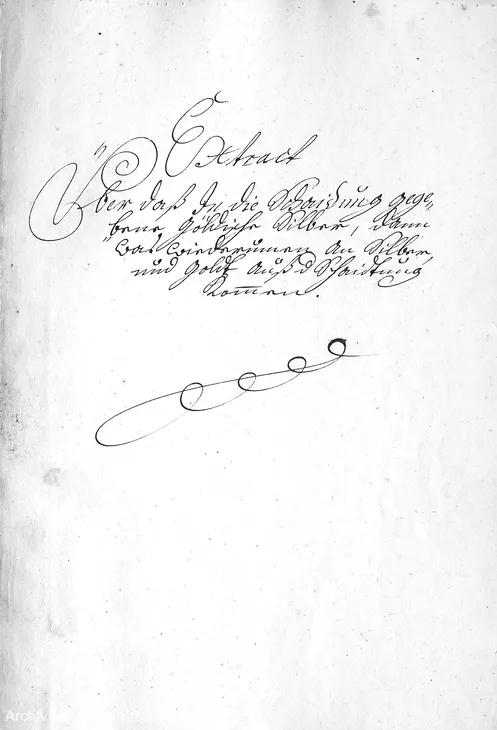 Extract
Über daß In die Schaidung gege„
bene göldische Silber, dann
was wiederumen an Silber,
und Goldt auß d Schaidtung
kommen.
Archiv